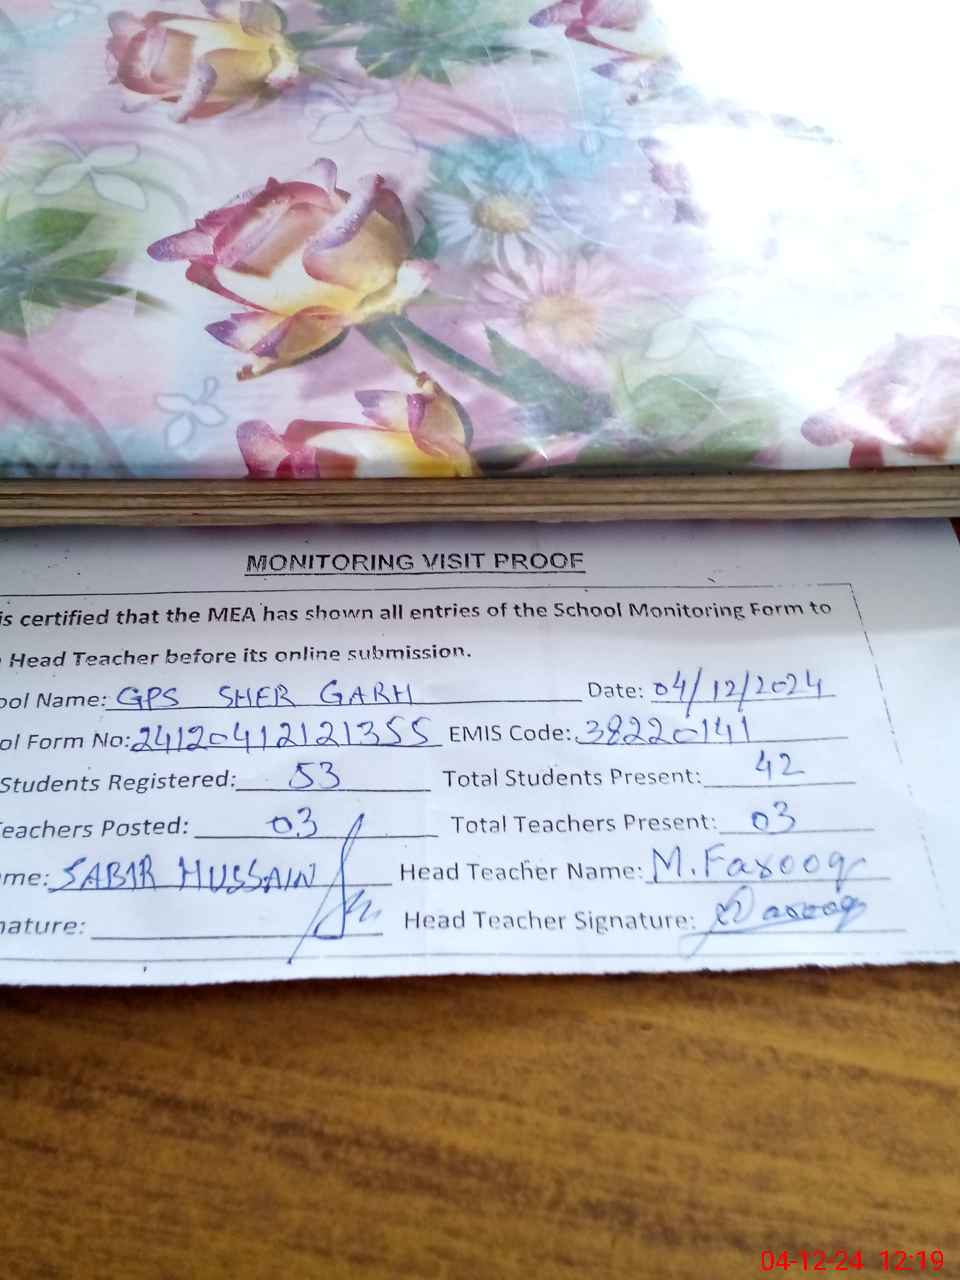 MONITORING VISIT PROOF
is certified that the MEA has shown all entries of the School Monitoring Form to
Head Teacher before its online submission.
ool Name: GPS SHER GARH Date: 04/12/2024
ol Form No: 24120412121355 EMIS Code: 38220141
Students Registered: 53 Total Students Present: 42
eachers Posted: 03 Total Teachers Present: 03
me: SABIR HUSSAIN Head Teacher Name: M. Farooq
nature: Head Teacher Signature: Farooq
04-12-24 12:19